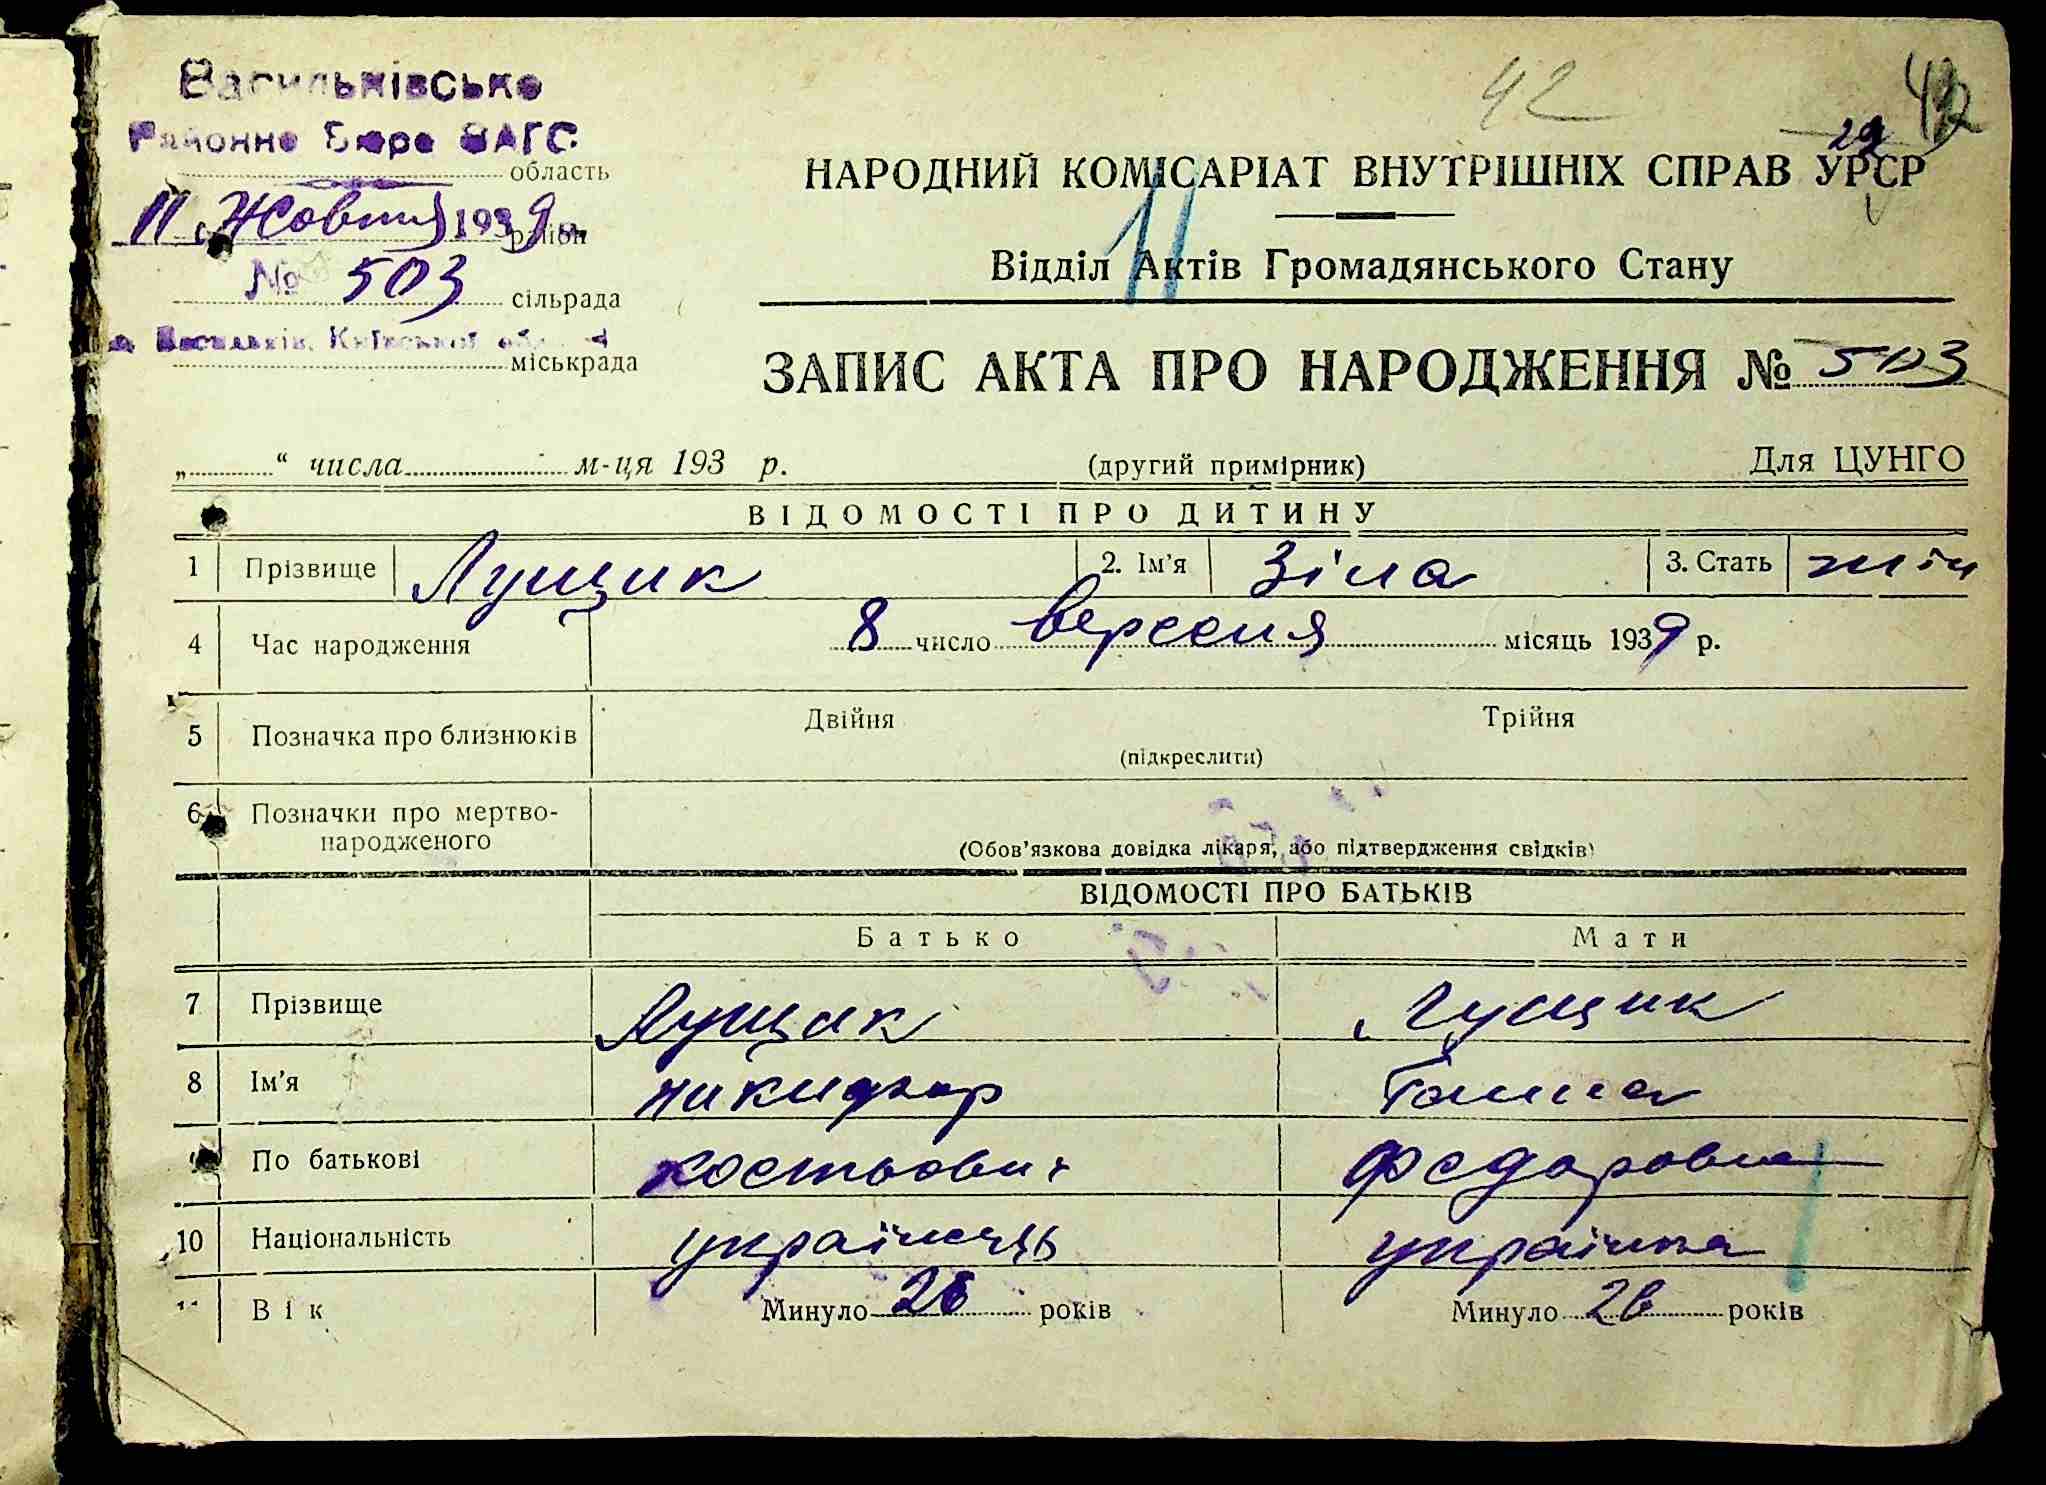 42
42
29
Васильківське
Районне Бюро ЗАГС
область
11 Жовтня 1939 р.
район
№ 503
сільрада
м. Васильків, Київської обл.
міськрада
НАРОДНИЙ КОМІСАРІАТ ВНУТРІШНІХ СПРАВ УРСР
11
Відділ Актів Громадянського Стану
ЗАПИС АКТА ПРО НАРОДЖЕННЯ № 503
„ “ числа м-ця 193 р. (другий примірник) Для ЦУНГО
ВІДОМОСТІ ПРО ДИТИНУ
1 Прізвище Лущик 2. Ім'я Зіна 3. Стать жін
4 Час народження 8 число вересня місяць 1939 р.
5 Позначка про близнюків Двійня Трійня
(підкреслити)
6 Позначки про мертво-
народженого
(Обов'язкова довідка лікаря, або підтвердження свідків)
ВІДОМОСТІ ПРО БАТЬКІВ
Батько Мати
7 Прізвище Лущик Лущик
8 Ім'я Никифор Ганна
По батькові костьович Федоровна
10 Національність українець українка
11 Вік Минуло 26 років Минуло 26 років